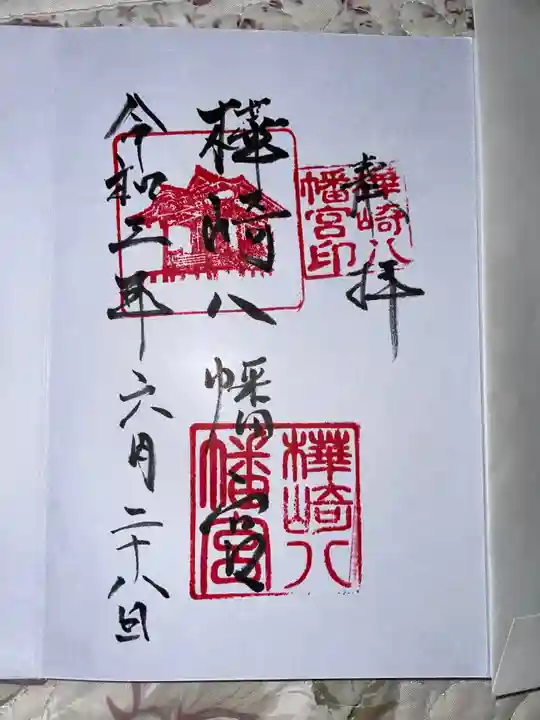 奉拝
樺崎八幡宮印
樺崎八幡宮
樺崎八幡宮
令和三年六月二十八日